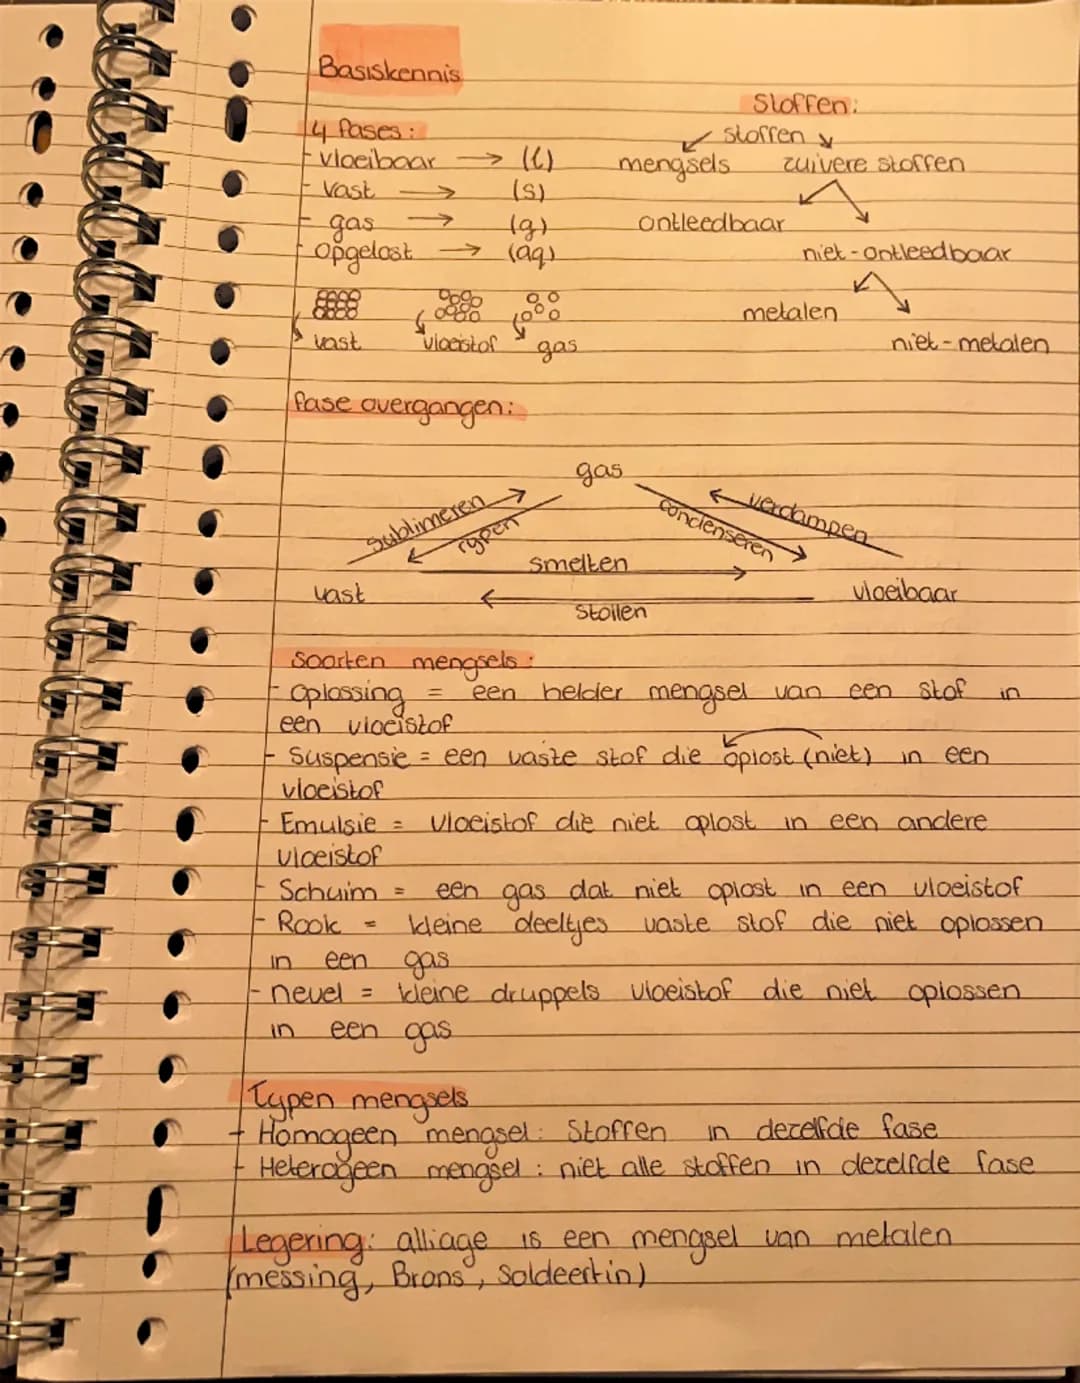 Basiskennis
Stoffen:
4 fases:
stoffen
vloeibaar → (l)
mengsels zuivere stoffen
vast → (s)
gas → (g)
ontleedbaar
opgelost → (aq)
niet-ontleedbaar
metalen
vast vloeistof gas
niet-metalen
fase overgangen:
gas
sublimeren
rypen
condenseren
verdampen
smelten
vast
vloeibaar
Stollen
Soorten mengsels:
- Oplossing = een helder mengsel van een stof in
een vloeistof
- Suspensie = een vaste stof die oplost (niet) in een
vloeistof
- Emulsie = vloeistof die niet oplost in een andere
vloeistof
- Schuim = een gas dat niet oplost in een vloeistof
- Rook = kleine deeltjes vaste stof die niet oplossen
in een gas
- nevel = kleine druppels vloeistof die niet oplossen
in een gas
Typen mengsels
- Homogeen mengsel: Stoffen in dezelfde fase
- Heterogeen mengsel: niet alle stoffen in dezelfde fase
Legering: alliage is een mengsel van metalen
(messing, Brons, Soldeertin)